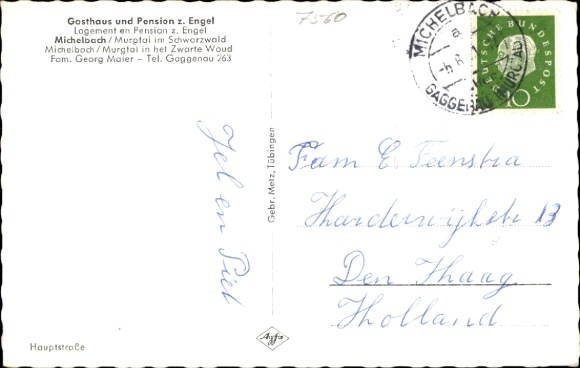 Gasthaus und Pension z. Engel
Logement en Pension z. Engel
Michelbach / Murgtal im Schwarzwald
Michelbach / Murgtal in het Zwarte Woud
Fam. Georg Maier – Tel. Gaggenau 263
7560
MICHELBACH
GAGGENAU (MURGTAL)
DEUTSCHE BUNDESPOST
10
Gebr. Metz, Tübingen
Jel en Piet
Fam E Feenstra
Harderwijkstr 13
Den Haag
Holland
Agfa
Hauptstraße